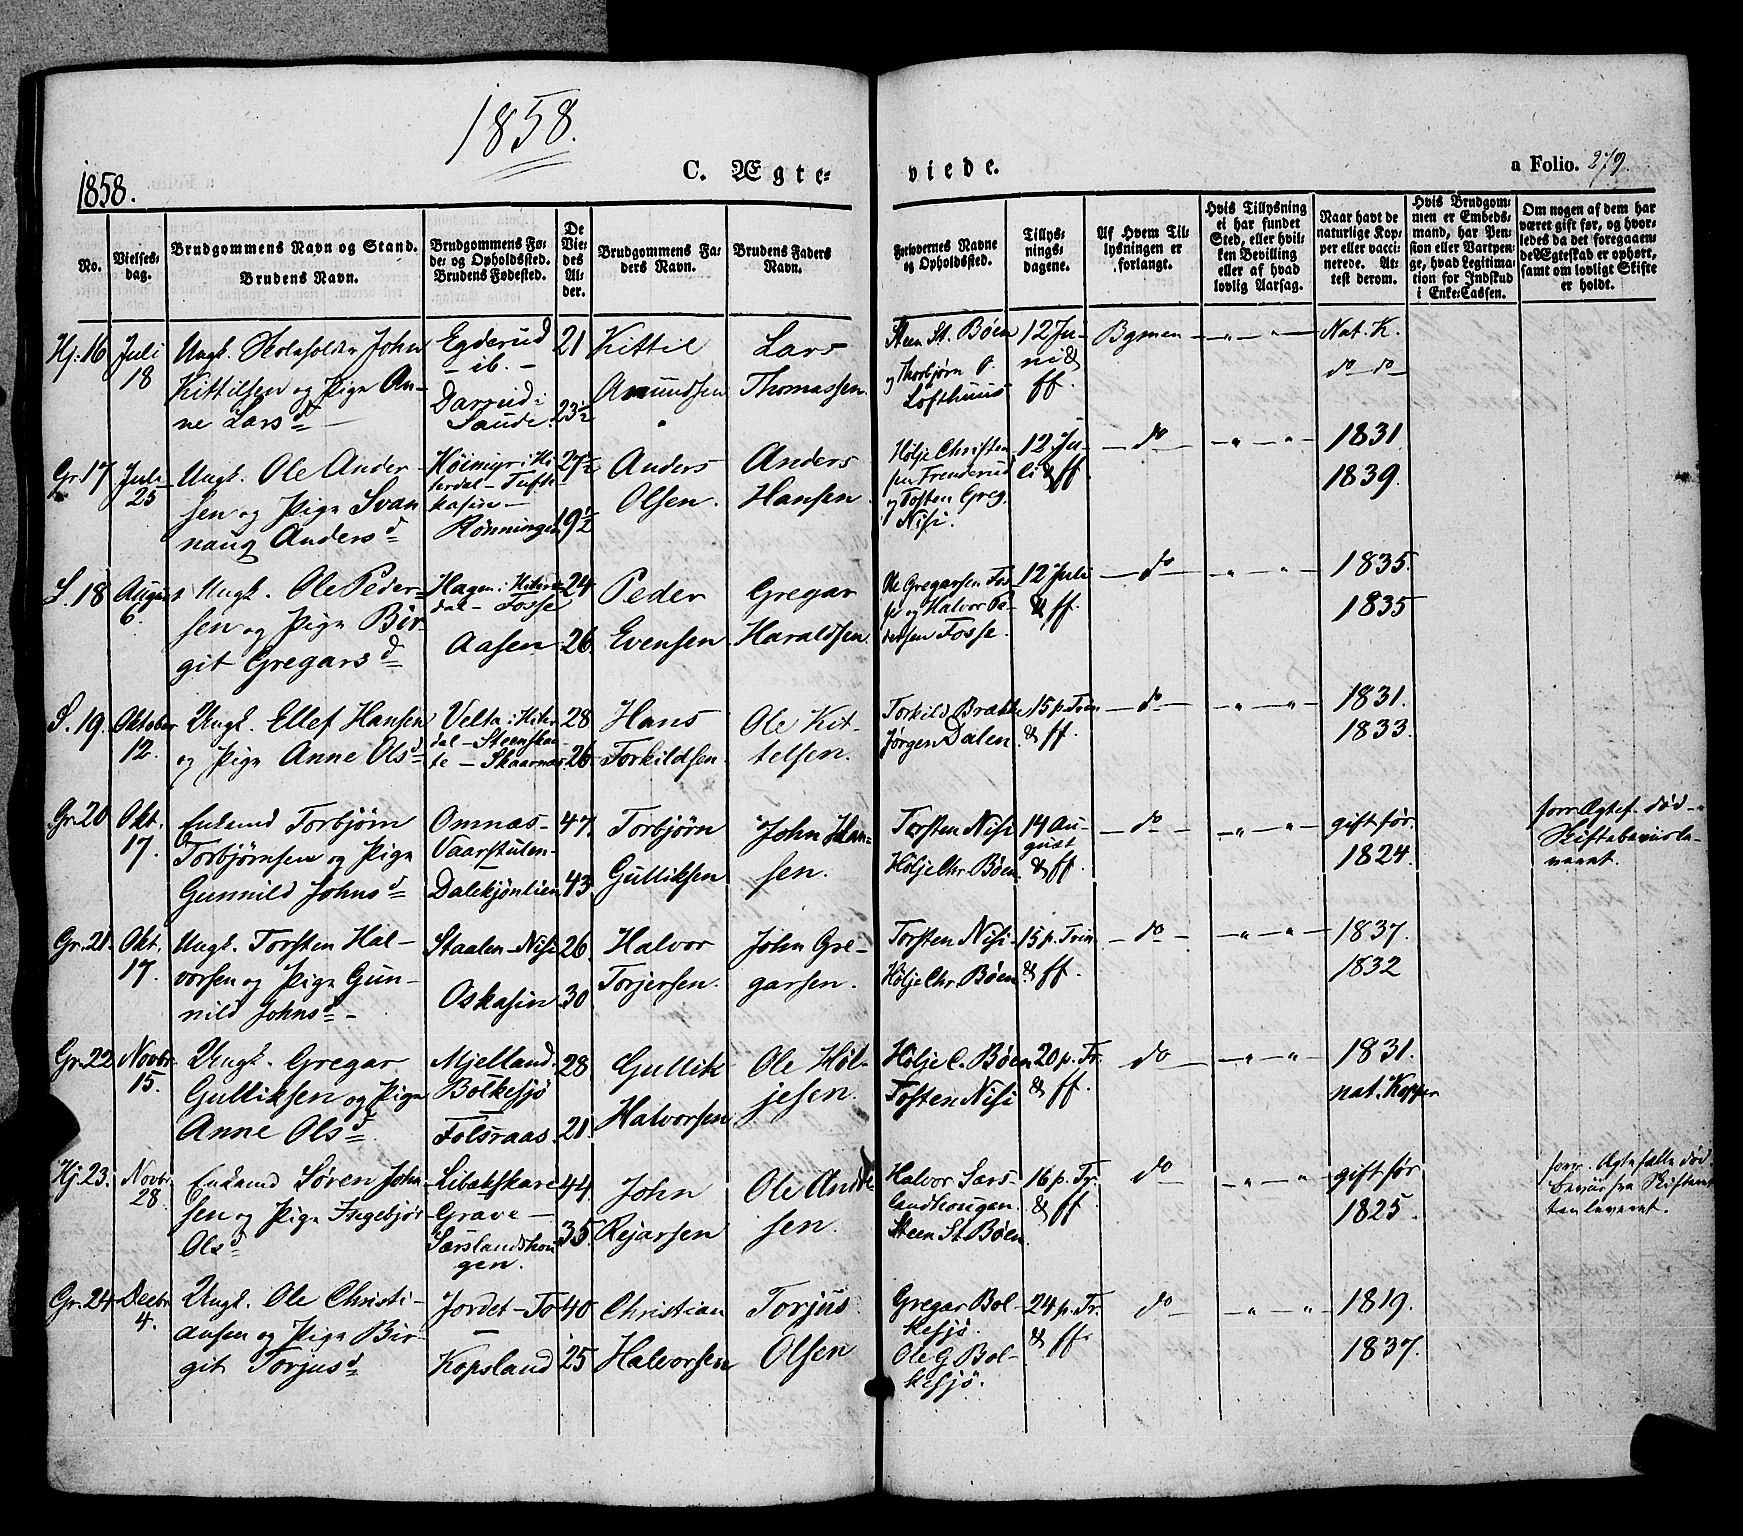 1858.
1858.
C. Ægte=
viede.
a Folio. 279.
No.
Vielses=
dag.
Brudgommens Navn og Stand.
Brudens Navn.
Brudgommens Fø=
de= og Opholdssted.
Brudens Fødested.
De
Vie=
des
Al=
der.
Brudgommens Fa=
ders Navn.
Brudens Faders
Navn.
Forlovernes Navne
og Opholdssted.
Tillys=
nings=
dagene.
Af Hvem Til=
lysningen er
forlangt.
Hvis Tillysning
ei har fundet
Sted, eller hvil=
ken Bevilling
eller af hvad
lovlig Aarsag.
Naar havt de
naturlige Kop=
per eller vacci=
nerede. At=
test derom.
Hvis Brudgom=
men er Embeds=
mand, har Pen=
sion eller Vartpen=
ge, hvad Legitima=
tion for Indskud
i Enke=Cassen.
Om nogen af dem har
været gift før, og hvor=
ledes da det foregaaen=
de Ægteskab er ophørt,
samt om lovligt Skifte
er holdt.
Hj. 16
Juli
18
Ungk. Skoleholder John
Kittilsen og Pige An-
ne Larsd
Egderud
- ib. -
Darrud i
Saude.
21
23½
Kittil
Amundsen
Lars
Thomassen.
Steen St. Bøen
og Thorbjørn O.
Lofthuus
12 Ju-
ni &
ff.
Bgmen
- " - " -
Nat. K.
do do
Gr. 17
Juli
25
Ungk. Ole Ander-
sen og Pige Svan
naug Andersd
Høimyr i Hi
terdal - Tufte
kasin -
Rønningen
27½
19½
Anders
Olsen.
Anders
Hansen.
Hølje Christen
sen Frenderud
og Tosten Greg.
Nisi.
12 Ju-
li & ff.
- do -
- " - " -
1831.
1839.
S. 18
August
6.
Ungk. Ole Peder-
sen og Pige Bir-
git Gregarsd
Hagen i Hiter
dal - Fosse
Aasen
24
26.
Peder
Evensen
Gregar
Haraldsen.
Ole Gregarsen Fos-
se og Halvor Pe-
dersen Fosse.
12 Juli
& ff.
- do -
- " - " -
1835.
1835
S. 19.
Oktober
12.
Ungk. Ellef Hansen
og Pige Anne Olsd
Velta i Hiter
dal - Steenska
te - Skaarnæs.
28
26
Hans
Torkildsen.
Ole Kit-
telsen.
Torkild Brække
Jørgen Dalen.
15 p. Trin
& ff.
- do -
- " - " -
1831.
1833.
Gr. 20
Okt.
17.
Enkemd Torbjørn
Torbjørnsen og Pige
Gunnild Johnsd
Omnæs-
Vaarstulen-
Dalekjønlien
47.
43.
Torbjørn
Gulliksen
John Han-
sen.
Torsten Nisi
Hølje Chr. Bøen.
14 Au-
gust
& ff.
- do -
- " - " -
gift før.
1824.
forr. Ægtef. død -
Skiftebeviis le-
veret.
Gr. 21.
Okt.
17.
Ungk. Torsten Hal-
vorsen og Pige Gun-
nild Johnsd -
Staalen - Nisi
Oskasin
26.
30
Halvor
Torjersen.
John Gre-
garsen.
Torsten Nisi
Hølje Chr. Bøen.
15 p. Trin
& ff.
- do -
- " - " -
1837.
1832
Gr. 22
Novbr.
15.
Ungk. Gregar
Gulliksen og Pige
Anne Olsd.
Mjelland.
Bolkesjø
Folsraas.
28
21.
Gullik
Halvorsen
Ole Høl-
jesen.
Hølje C. Bøen
Tosten Nisi
20 p. Tr.
& ff.
do
- " - " -
1831.
nat. Kopper
Hj. 23.
Novbr.
28.
Enkemd Søren John
sen og Pige Ingebjør
Olsd
Libækskare
- Grave -
Særslandshou
gen.
44.
35.
John
Rejarsen
Ole Ande
sen.
Halvor Særs-
landhougen.
Steen St. Bøen.
16 p. Tr.
& ff
do
- " - " -
gift før
1825.
forr. Ægtefælle død.
Beviis fra Skifteret
ten leveret.
Gr. 24
Decbr.
4.
Ungk. Ole Christi-
ansen og Pige Bir-
git Torjusd
Jordet - To
Kopsland
40
25
Christian
Halvorsen
Torjus
Olsen
Gregar Bol-
kesjø.
Ole G Bol-
kesjø.
24 p. Tr.
& ff.
do
- " - " -
1819.
1837.